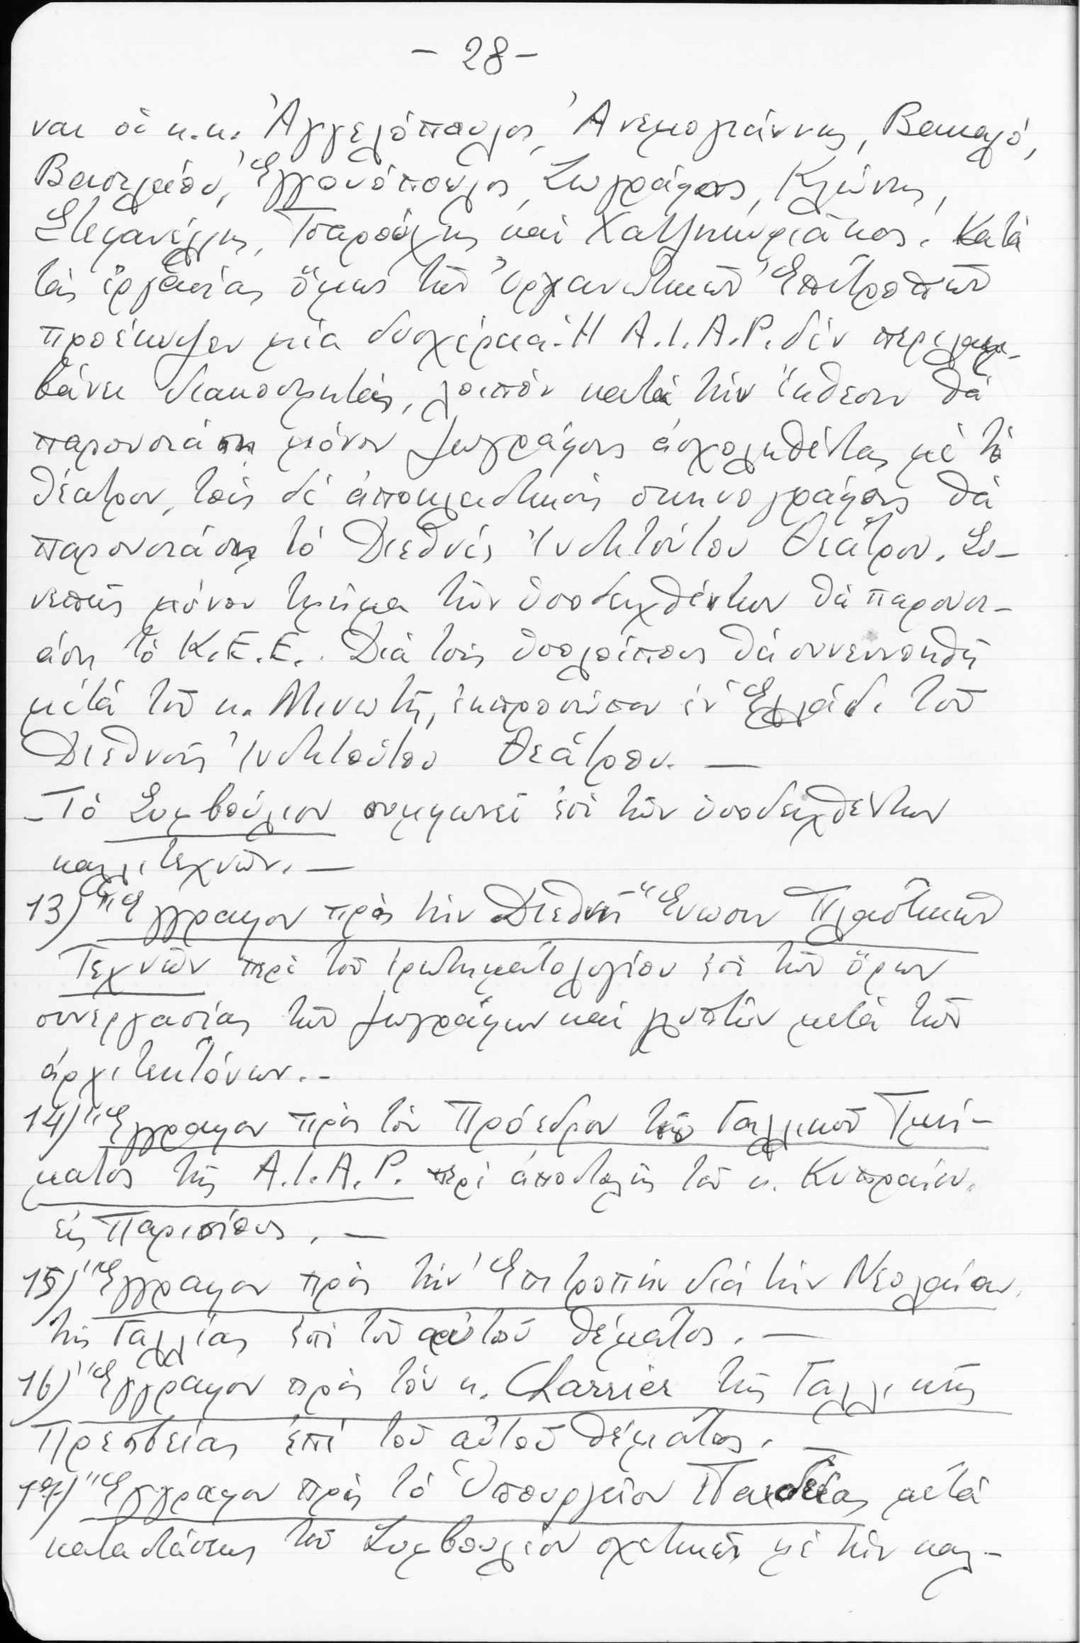 - 28 -
ναι οἱ κ.κ. Ἀγγελόπουλος, Ἀνεμογιάννης, Βακαλό,
Βασιλείου, Ἐγγονόπουλος, Ζωγράφος, Κλώνης,
Στεφανέλλης, Τσαρούχης καὶ Χατζηκυριάκος. Κατὰ
τὰς ἐργασίας ὅμως τῶν Ὀργανωτικῶν Ἐπιτροπῶν
προέκυψεν μία δυσχέρεια. Ἡ A.I.A.P. δὲν περιλαμ-
βάνει διακοσμητάς, λοιπὸν κατὰ τὴν ἔκθεσιν θὰ
παρουσιάση μόνον ζωγράφους ἀσχοληθέντας μὲ τὸ
θέατρον, τοὺς δὲ ἀποκλειστικοὺς σκηνογράφους θὰ
παρουσιάση τὸ Διεθνὲς Ἰνστιτοῦτον Θεάτρου. Συ-
νεπῶς μόνον τμῆμα τῶν ὑποδειχθέντων θὰ παρουσι-
άση τὸ Κ.Ε.Ε. Διὰ τοὺς ὑπολοίπους θὰ συνεννοηθῆ
μετὰ τοῦ κ. Μινωτῆ, ἐκπροσώπου ἐν Ἑλλάδι τοῦ
Διεθνοῦς Ἰνστιτούτου Θεάτρου. —
- Τὸ Συμβούλιον συμφωνεῖ ἐπὶ τῶν ὑποδειχθέντων
καλλιτεχνῶν. —
13) Ἔγγραφον πρὸς τὴν Διεθνῆ Ἕνωσιν Πλαστικῶν
Τεχνῶν περὶ τοῦ ἐρωτηματολογίου ἐπὶ τῶν ὅρων
συνεργασίας τῶν ζωγράφων καὶ γλυπτῶν μετὰ τῶν
ἀρχιτεκτόνων. -
14) Ἔγγραφον πρὸς τὸν Πρόεδρον τοῦ Γαλλικοῦ Τμή-
ματος τῆς A.I.A.P. περὶ ἀποστολῆς τοῦ κ. Κυπραίου
εἰς Παρισίους. —
15) Ἔγγραφον πρὸς τὴν Ἐπιτροπὴν διὰ τὴν Νεολαίαν
τῆς Γαλλίας ἐπὶ τοῦ αὐτοῦ θέματος. —
16) Ἔγγραφον πρὸς τὸν κ. Charrier τῆς Γαλλικῆς
Πρεσβείας ἐπὶ τοῦ αὐτοῦ θέματος. —
17) Ἔγγραφον πρὸς τὸ Ὑπουργεῖον Παιδείας μετὰ
καταστάσεως τοῦ Συμβουλίου σχετικῶς μὲ τὴν καλ-